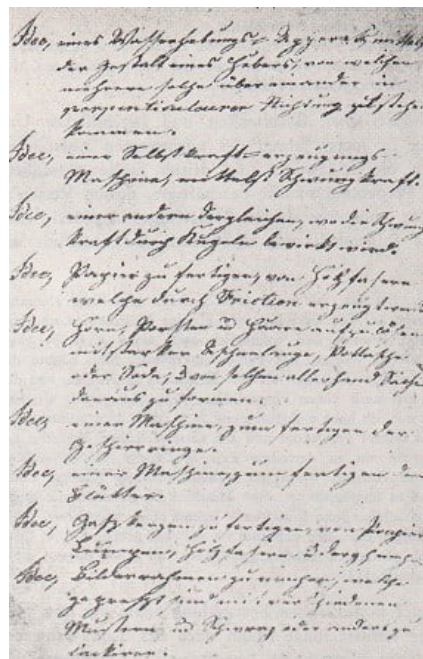 Idee, eines Wasserhebungs-Apperats, mittels
der Gestalt eines Hebers, von welchen
mehrere solche über einander in
Richtung zu stehen
kommen.
Idee, einer Selbstkraft-erzeugungs
Maschine, mittelst Schwungkraft.
Idee, einer andern dergleichen, wo die Schwung
kraft durch Kugeln bewirkt wird.
Idee, Papier zu fertigen, von Holzfasern
welche durch Friction erzeugt werden
Idee, Horn, Borsten und Haare aufzulösen
mit starker Aschenlauge, Pottasche
oder Soda, & von solchen allerhand Sachen
daraus zu formen.
Idee, einer Maschine, zum fertigen der
Geschirringe.
Idee, einer Maschine, zum fertigen der
Blätter.
Idee, zu fertigen, von Papier
Lumpen, Holzfasern &
Idee, Bilderrahmen zu machen, welche
gepreßt sind mit verschiedenen
Mustern, und Schwarz oder anders zu
lackiren.